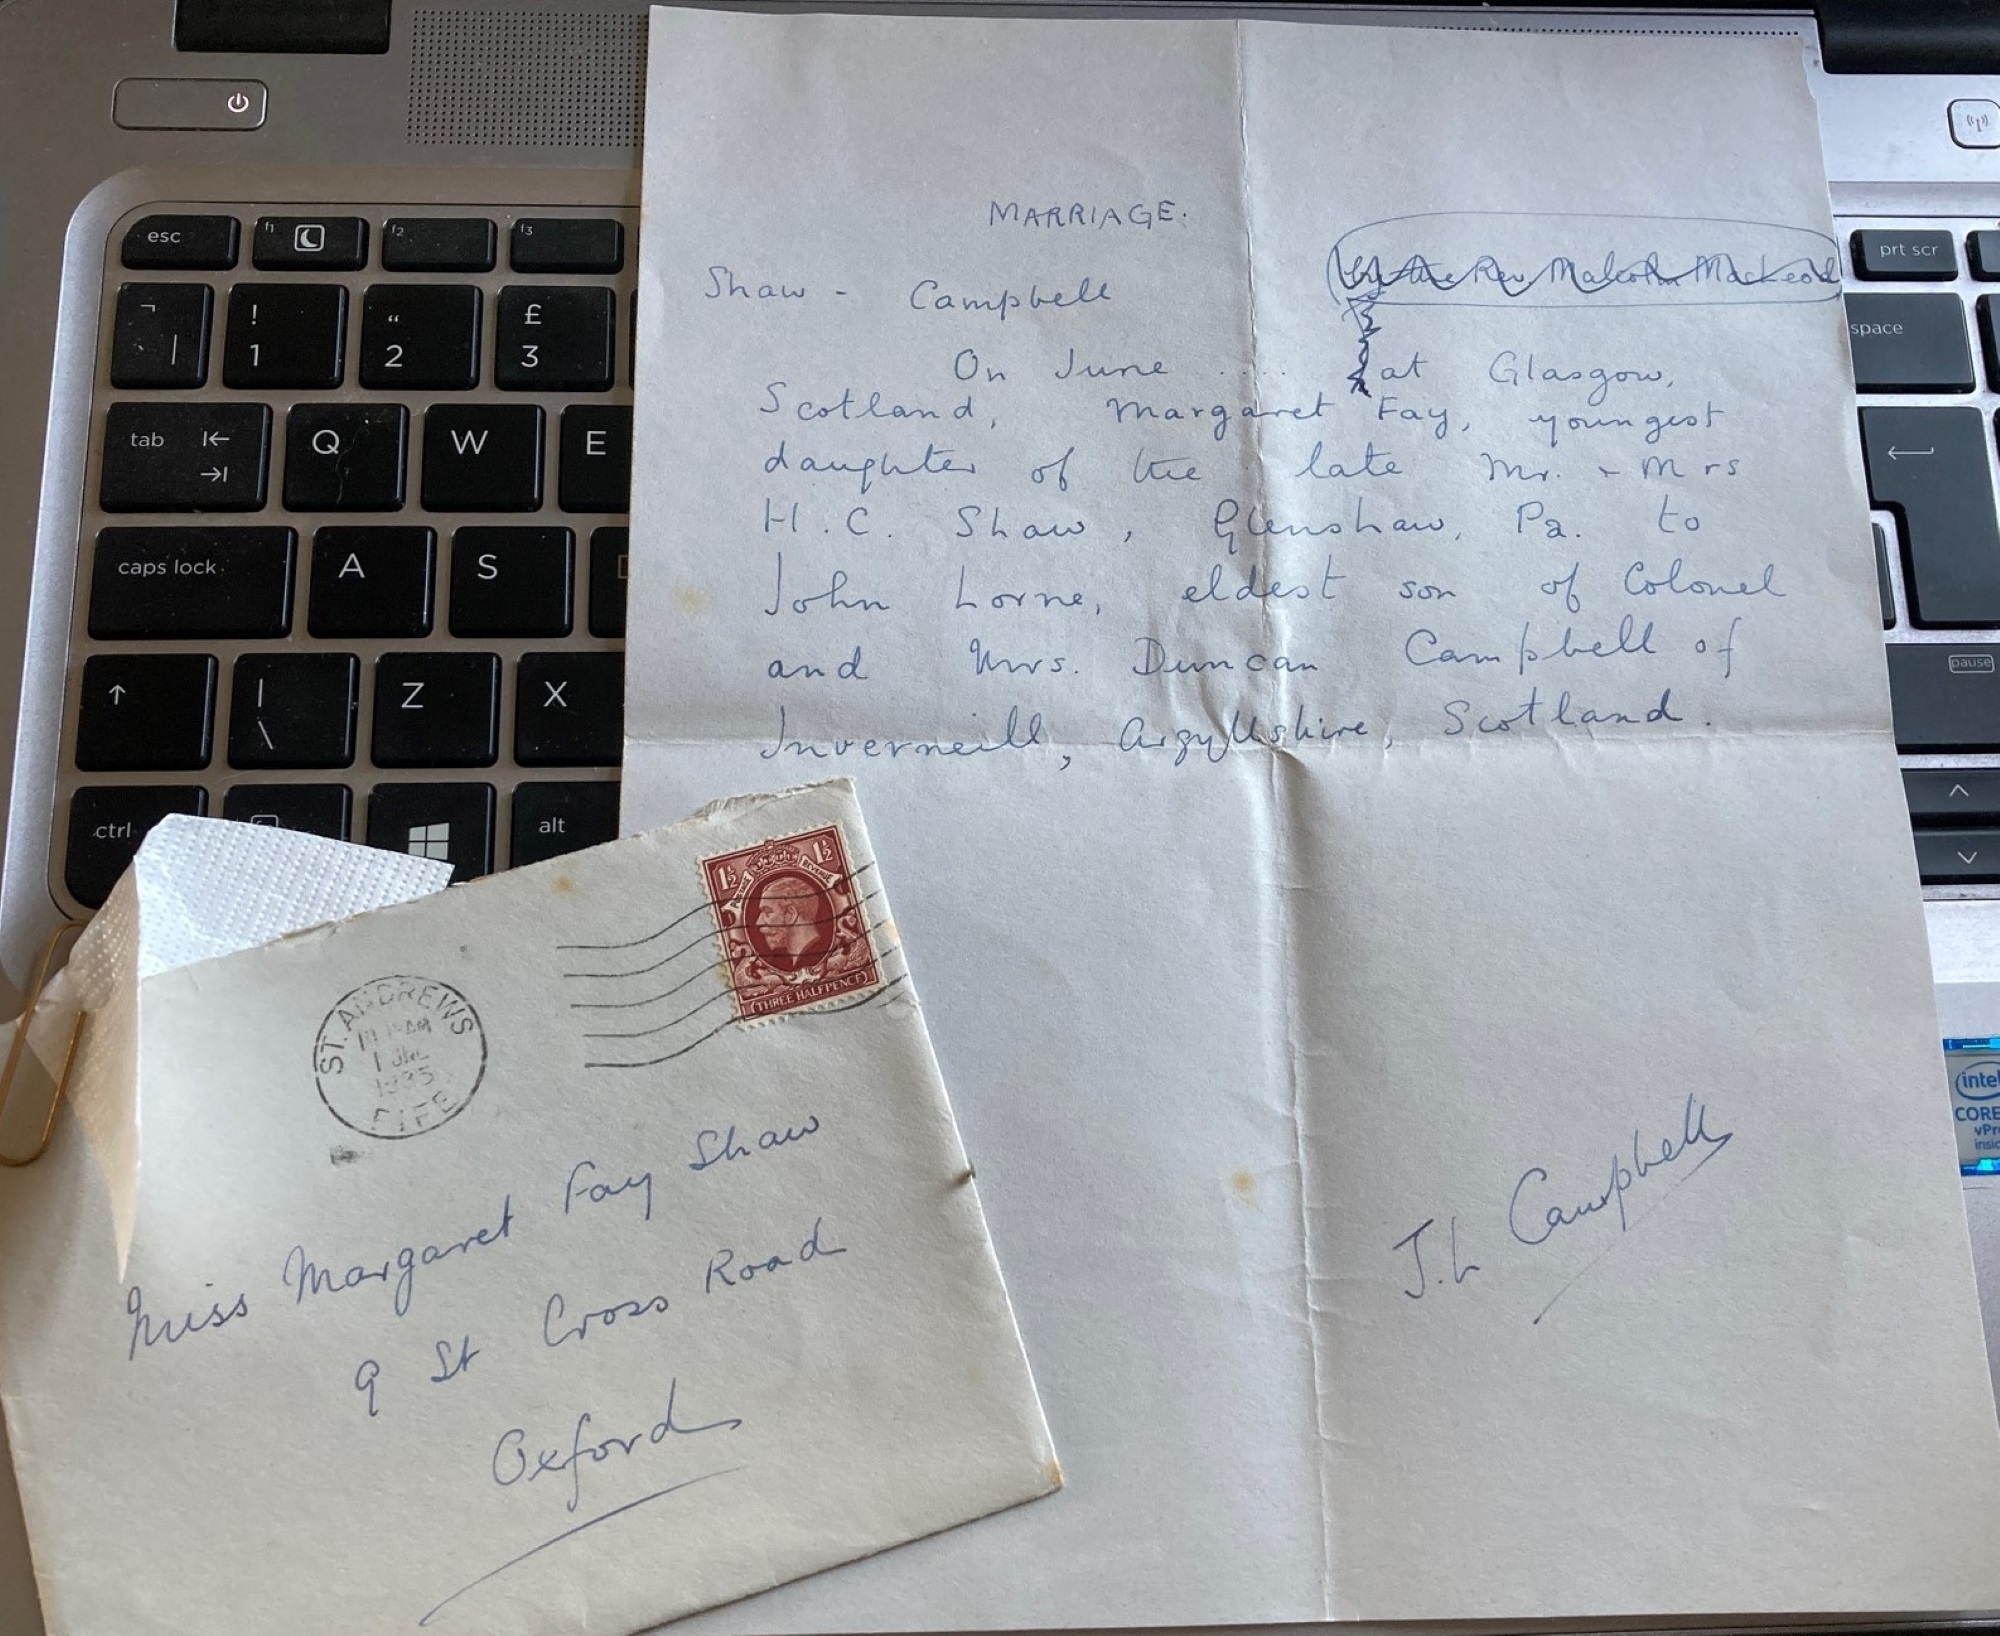 MARRIAGE.
by the Rev. Malcolm MacLeod
Shaw - Campbell
On June .... at Glasgow,
Scotland, Margaret Fay, youngest
daughter of the late Mr. + Mrs
H.C. Shaw, Glenshaw, Pa. to
John Lorne, eldest son of Colonel
and Mrs. Duncan Campbell of
Inverneill, Argyllshire, Scotland.
J.L Campbell
1½ 1½
POSTAGE REVENUE
THREE HALFPENCE
ST. ANDREWS
AM
1 JNE
1935
FIFE
Miss Margaret Fay Shaw
9 St Cross Road
Oxford
esc f1 f2 f3 prt scr
¬ ! " £
\ | 1 2 3 space
tab Q W E
caps lock A S
| \ Z X pause
ctrl alt
intel
CORE
vPro